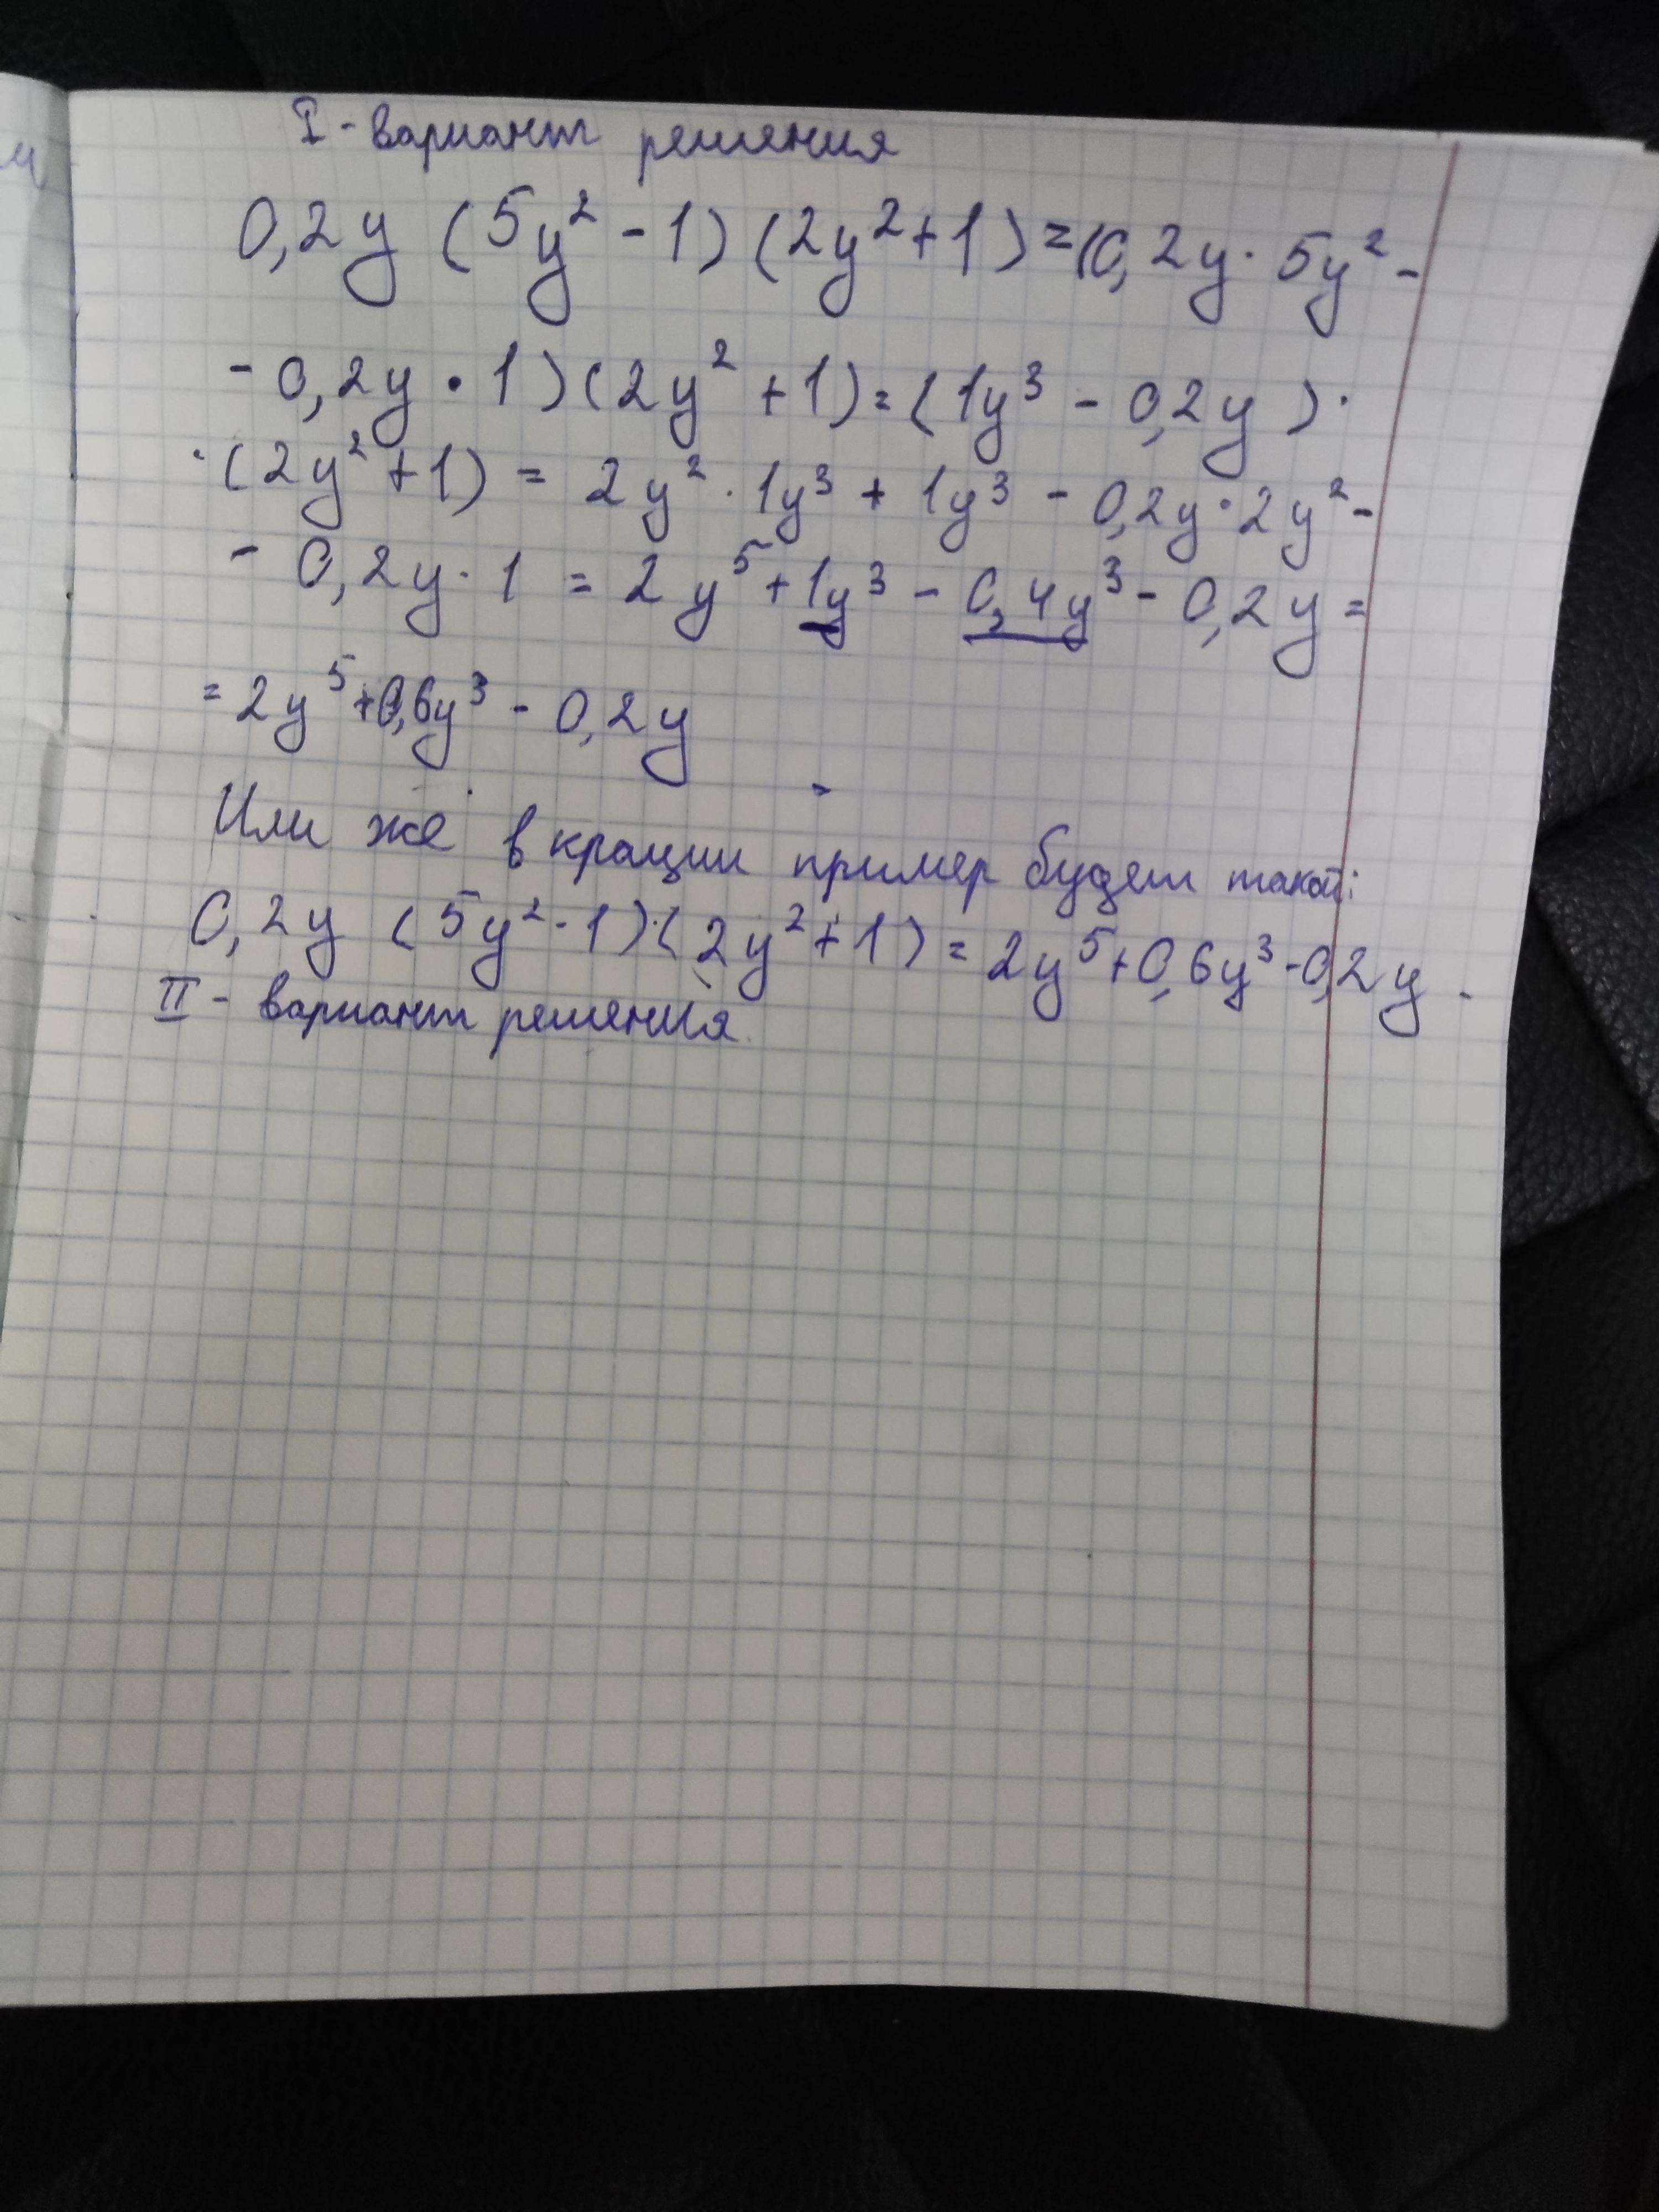 I - вариант решения
0,2y (5y² - 1) (2y² + 1) = (0,2y · 5y² -
- 0,2y · 1) (2y² + 1) = (1y³ - 0,2y) ·
· (2y² + 1) = 2y² · 1y³ + 1y³ - 0,2y · 2y² -
- 0,2y · 1 = 2y⁵ + 1y³ - 0,4y³ - 0,2y =
= 2y⁵ + 0,6y³ - 0,2y
Или же вкрации пример будет такой:
0,2y (5y² - 1) · (2y² + 1) = 2y⁵ + 0,6y³ - 0,2y.
II - вариант решения.